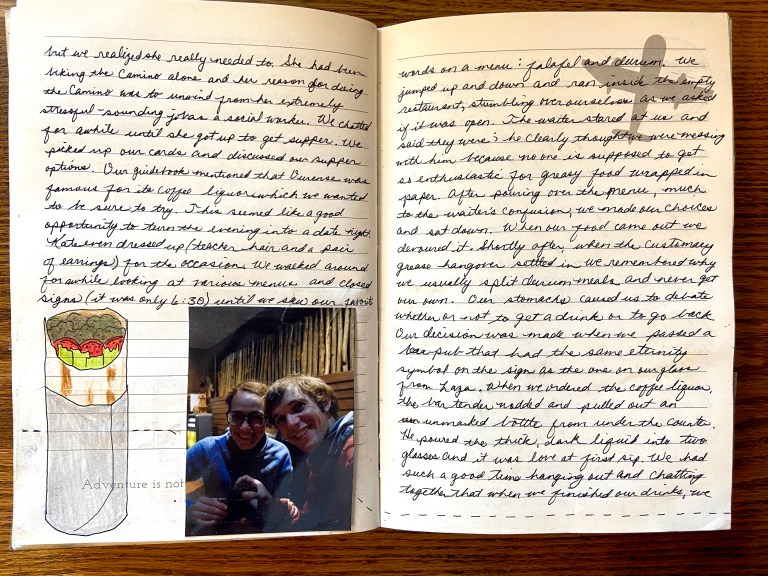 but we realized she really needed to. She had been
hiking the Camino alone and her reason for doing
the Camino was to unwind from her extremely
stressful-sounding job as a social worker. We chatted
for awhile until she got up to get supper. We
picked up our cards and discussed our supper
options. Our guidebook mentioned that Ourense was
famous for its coffee liquor which we wanted
to be sure to try. This seemed like a good
opportunity to turn the evening into a date night.
Kate even dressed up (teacher hair and a pair
of earrings) for the occasion. We walked around
for awhile looking at various menus and closed
signs (it was only 6:30) until we saw our favorite
Adventure is not
words on a menu: falafel and durum. We
jumped up and down and ran inside the empty
restaurant, stumbling over ourselves as we asked
if it was open. The waiter stared at us and
said they were; he clearly thought we were messing
with him because no one is supposed to get
so enthusiastic for greasy food wrapped in
paper. After pouring over the menu, much
to the waiter's confusion, we made our choices
and sat down. When our food came out we
devoured it. Shortly after, when the customary
grease hangover settled in we remembered why
we usually split durum meals and never get
our own. Our stomachs caused us to debate
whether or not to get a drink or to go back.
Our decision was made when we passed a
pub that had the same eternity
symbol on the sign as the one on our glass
from Laza. When we ordered the coffee liquor,
the bar tender nodded and pulled out an
unmarked bottle from under the counter.
He poured the thick, dark liquid into two
glasses and it was love at first sip. We had
such a good time hanging out and chatting
together that when we finished our drinks, we